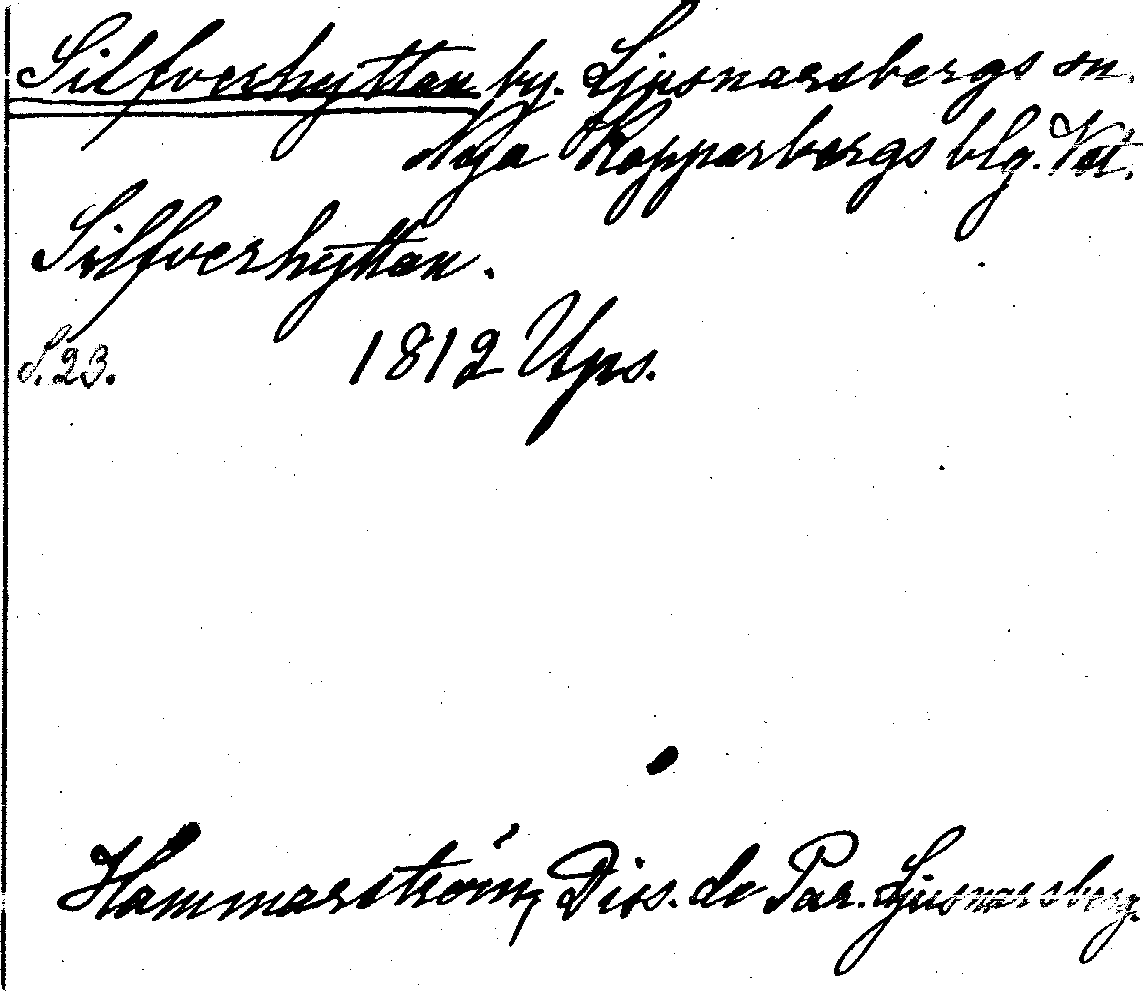 Silfverhyttan by. Ljusnarsbergs sn.
Nya Kopparbergs blg. Vstm.
Silfverhyttan.
S. 23. 1812 Ups.
Hammarström, Diss. de Par. Ljusnarsberg.